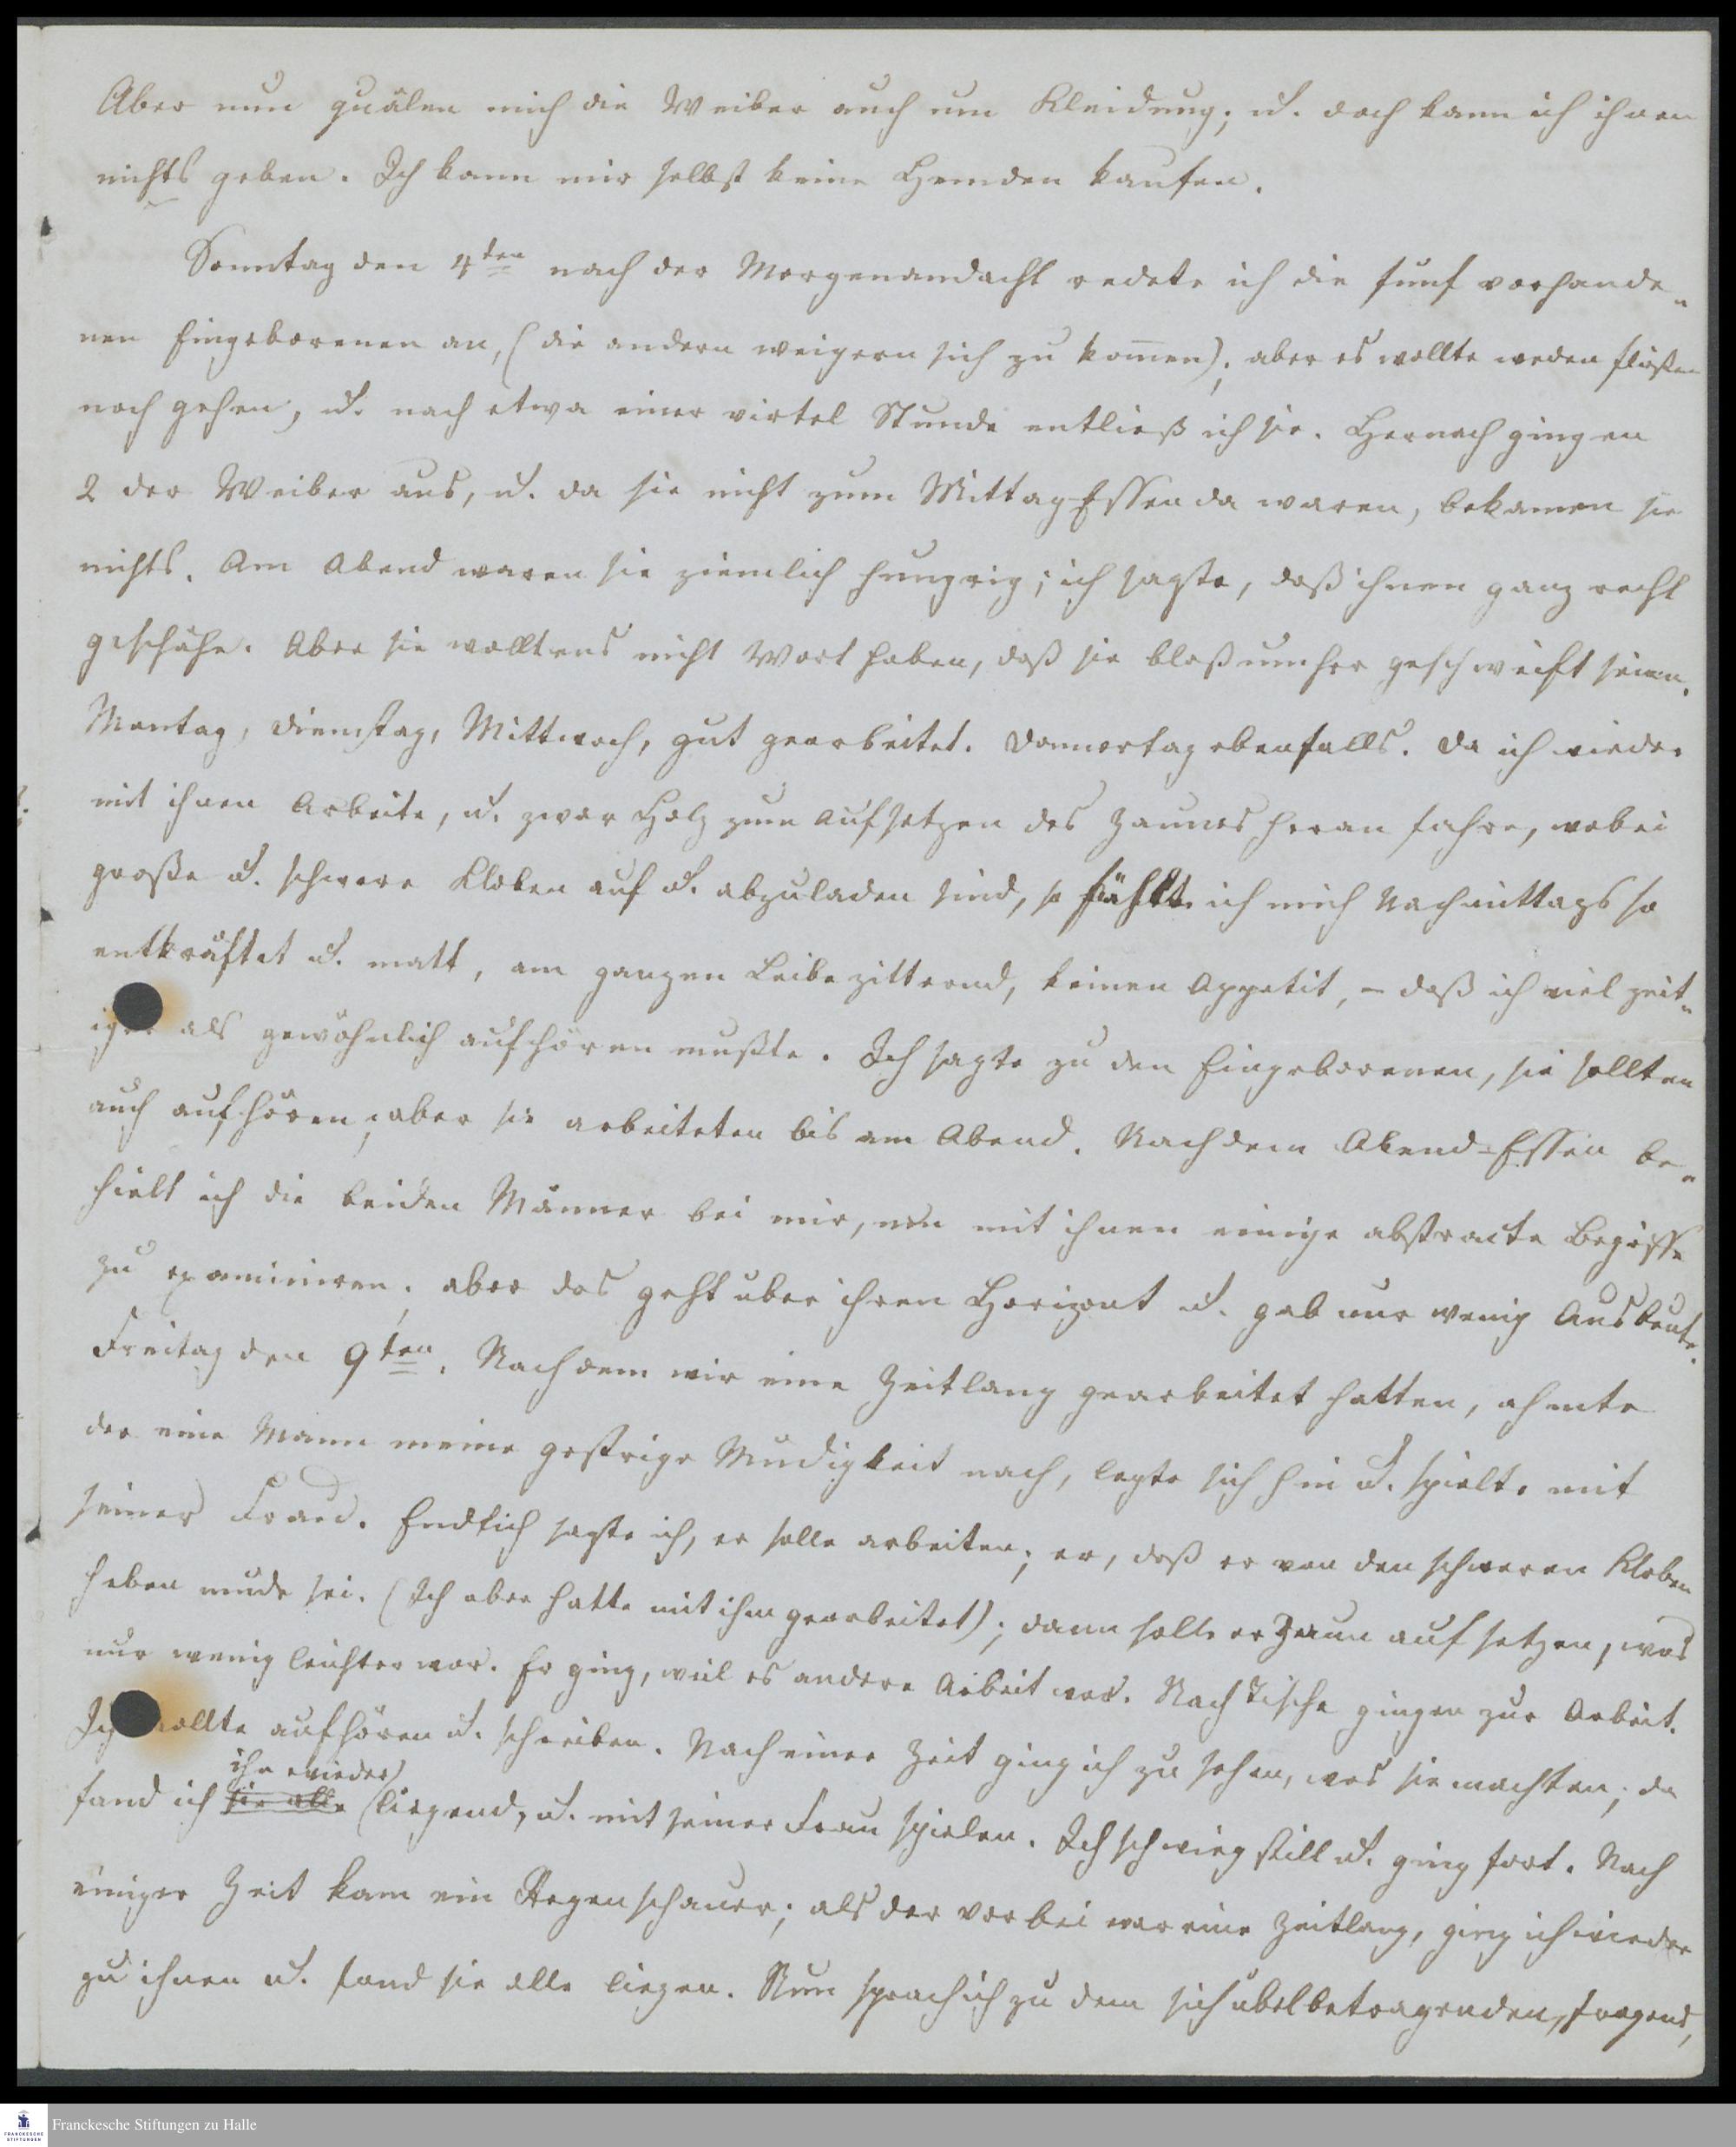 Aber nun quälen mich die Weiber auch um Kleidung; u. doch kann ich ihnen
nichts geben. Ich kann mir selbst keine Hemden kaufen.
Sonntag den 4ten nach der Morgenandacht redete ich die fünf vorhande-
nen Eingeborenen an, (die andern weigern sich zu kom̅en); aber es wollte weder fließen
noch gehen, u. nach etwa einer virtel Stunde entließ ich sie. Hernach gingen
2 der Weiber aus, u. da sie nicht zum Mittag Essen da waren, bekamen sie
nichts. Am Abend waren sie ziemlich hungrig; ich sagte, daß ihnen ganz recht
geschähe. Aber sie wolltens nicht Wort haben, daß sie bloß umher geschweift seien.
Montag, Dienstag, Mittwoch, gut gearbeitet. Donnertag ebenfalls. Da ich wieder
mit ihnen Arbeite, u. zwar Holz zum Aufsetzen des Zaunes heran fahre, wobei
große u. schwere Kloben auf u. abzuladen sind, so fühlte ich mich Nachmittags so
entkräftet u. matt, am ganzen Leibe zitternd, keinen Appetit, – daß ich viel zeit-
iger als gewöhnlich aufhören mußte. Ich sagte zu den Eingeborenen, sie sollten
auch aufhören; aber sie arbeiteten bis am Abend. Nach dem Abend-Essen be-
hielt ich die beiden Männer bei mir, um mit ihnen einige abstracte Begriffe
zu examiniren; aber das geht über ihren Horizont u. gab nur wenig Ausbeute.
Freitag den 9ten. Nachdem wir eine Zeitlang gearbeitet hatten, ahmte
der eine Mann meine gestrige Müdigkeit nach, legte sich hin u. spielte mit
seiner Frau. Endlich sagte ich, er solle arbeiten; er, daß er von den schweren Kloben
heben müde sei. (Ich aber hatte mit ihm gearbeitet); dann solle er Zaun aufsetzen, was
nur wenig leichter war. Er ging, weil es andere Arbeit war. Nach Tische gingen zur Arbeit.
Ich wollte aufhören u. schreiben. Nach einer Zeit ging ich zu sehen, was sie machten; da
ihn wieder
fand ich sie alle liegend, u. mit seiner Frau spielen. Ich schwieg still u. ging fort. Nach
einiger Zeit kam ein Regenschauer; als der vorbei war eine Zeitlang, ging ich wieder
zu ihnen u. fand sie alle liegen. Nun sprach ich zu dem sich übel betragenden, fragend,
Franckesche Stiftungen zu Halle
FRANCKESCHE
STIFTUNGEN